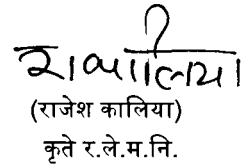 (राजेश कालिया)
कृते र.ले.म.नि.